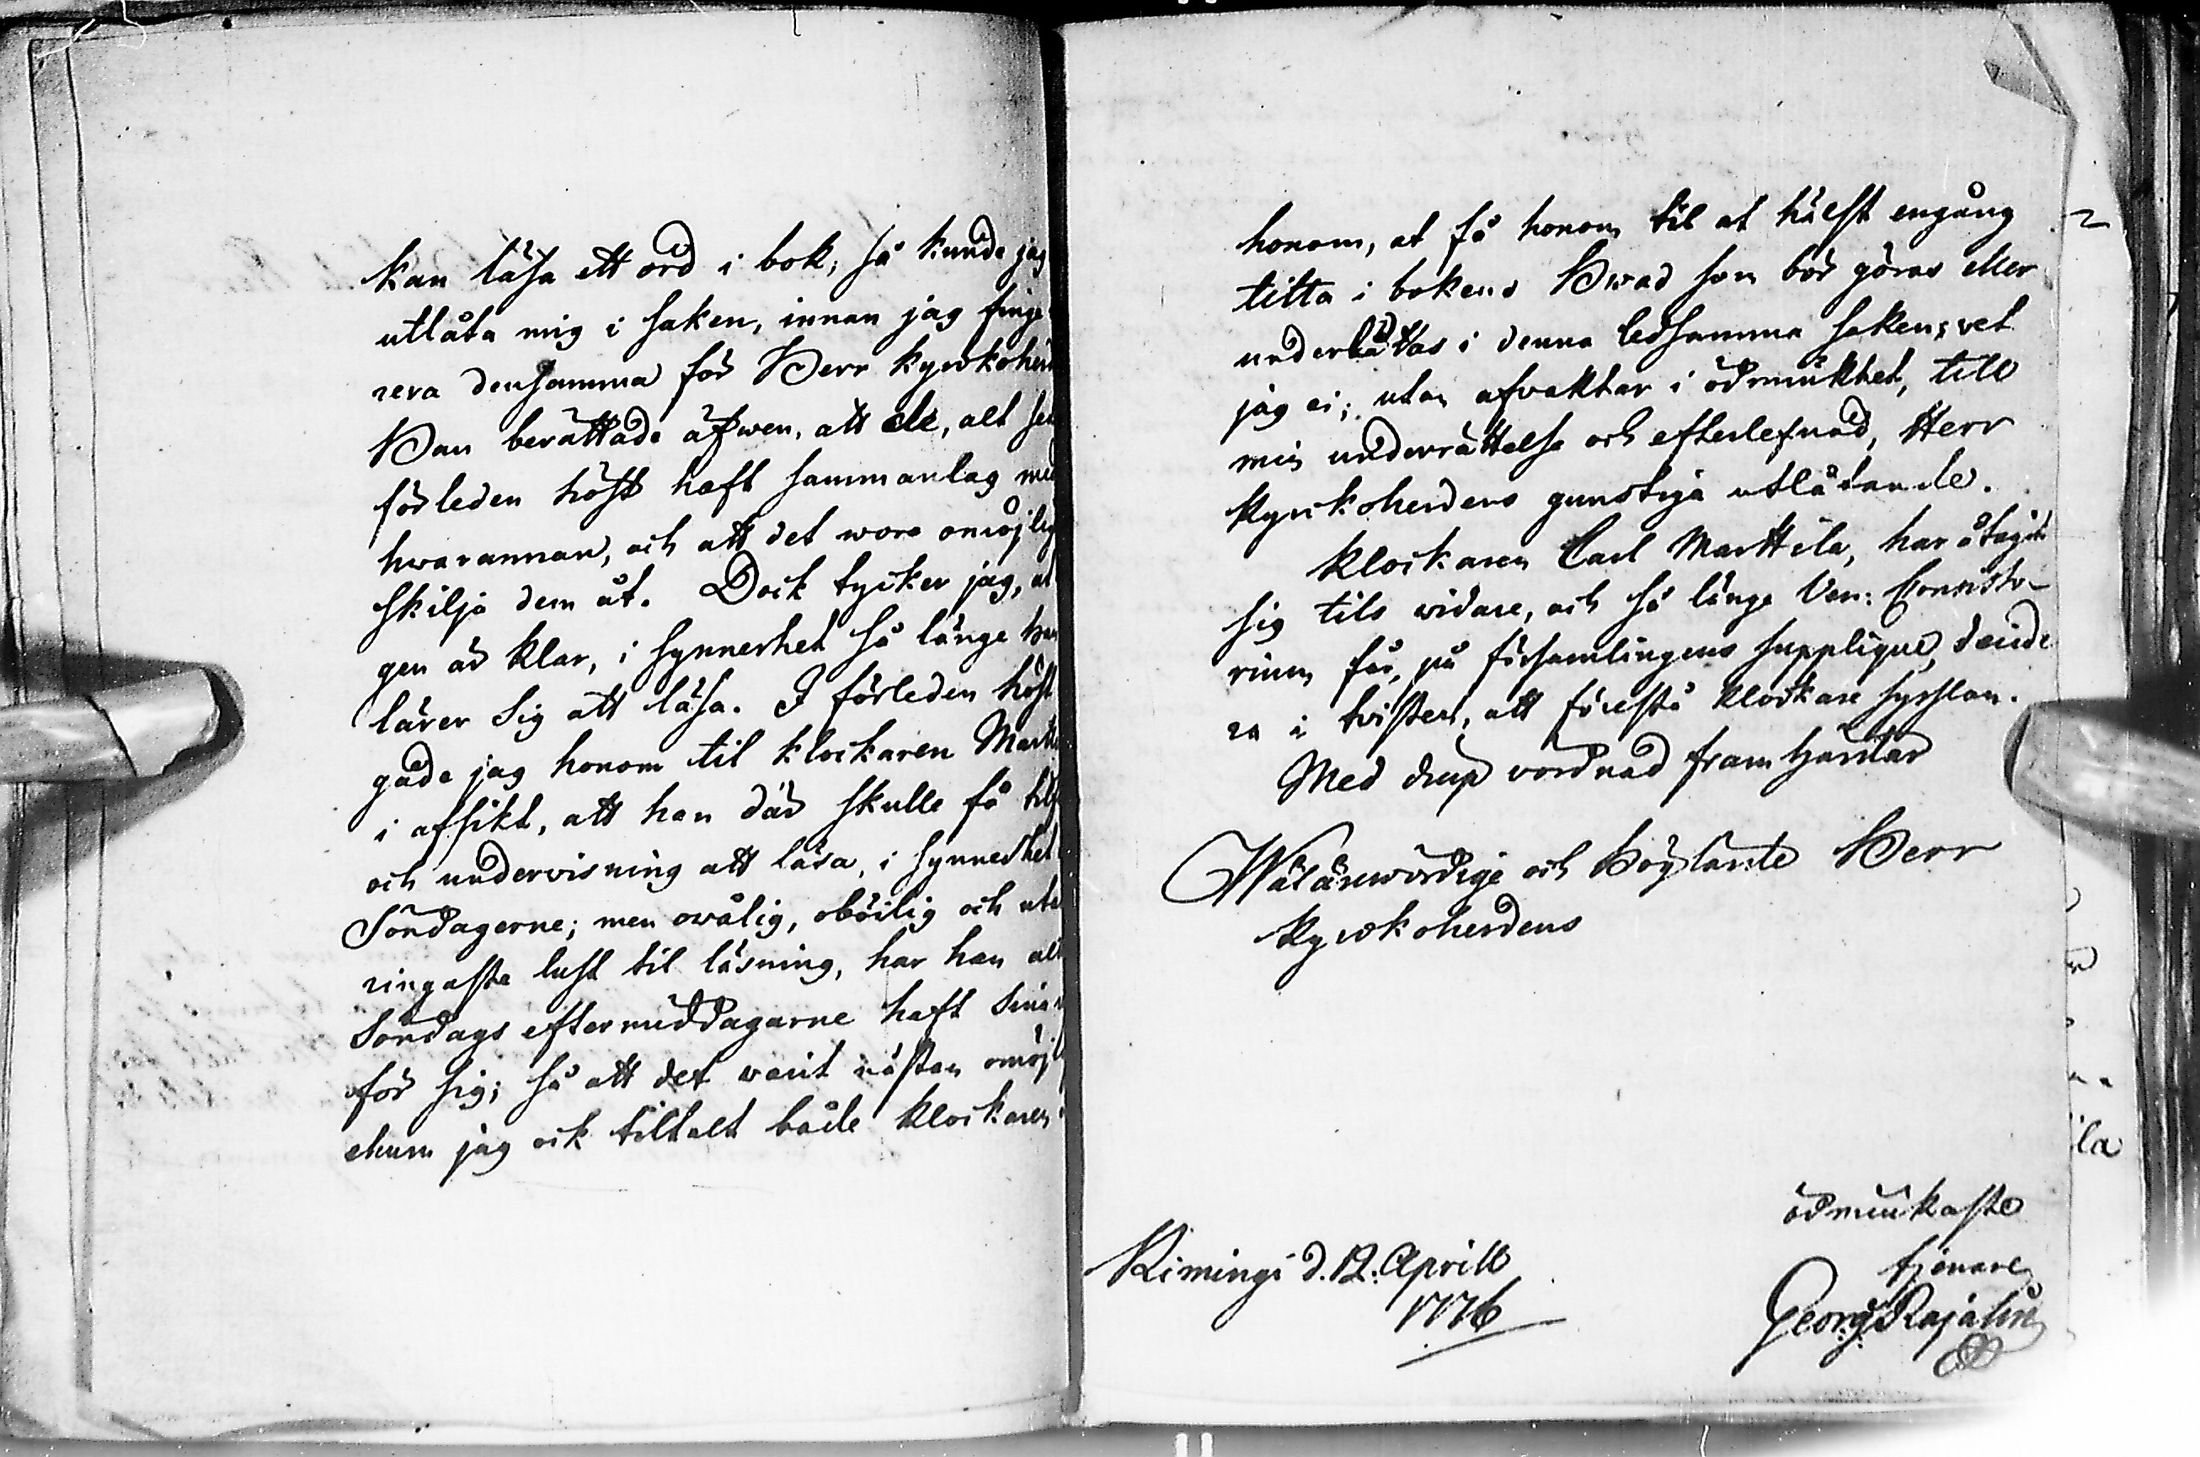 kan läsa ett ord i bok; så kunde jag
utlåta mig i saken, innan jag finge
rera densamma för Herr Kyrkoher
Han berättade äfwen, att de, alt se
förleden höst haft sammanlag med
hwarannan, och att det wore omöjlig
skilja dem åt. Dock tycker jag, at
gen är klar, i synnerhet så länge han
lärer sig att läsa. I förleden höst
gade jag honom til klockaren Martt
i afsikt, att han där skulle få til
och undervisning att läsa, i synnerhet
Söndagerne; men owålig, oböilig och uta
ringaste lust til läsning, har han alt
Söndags eftermiddagarne haft sina
för sig; så att det varit nästan omöjl
ehuru jag ock tiltalt både klockaren
honom, at få honom til at hälst engång
titta i boken. Hwad som bör göras eller
underlåttas i denna ledsamma saken, vet
jag ei; utan afvaktar i ödmiukhet, till
min underrättelse och efterlefnad, Herr
Kyrkoherdens gunstiga utlåtande.
Klockaren Carl Marttila, har åtagit
sig tils widare, och så länge Ven: Consisto-
rium får, på församlingens supplique, decide
ra i tvisten, att förestå klockare sysslan.
Med diup vördnad framhärdar
Wälärewördige och Höglärde Herr
Kyrkoherdens
ödmiukaste
tjenare
Kimingi d. 12. Aprill
1776
Georg Rajalin
ila